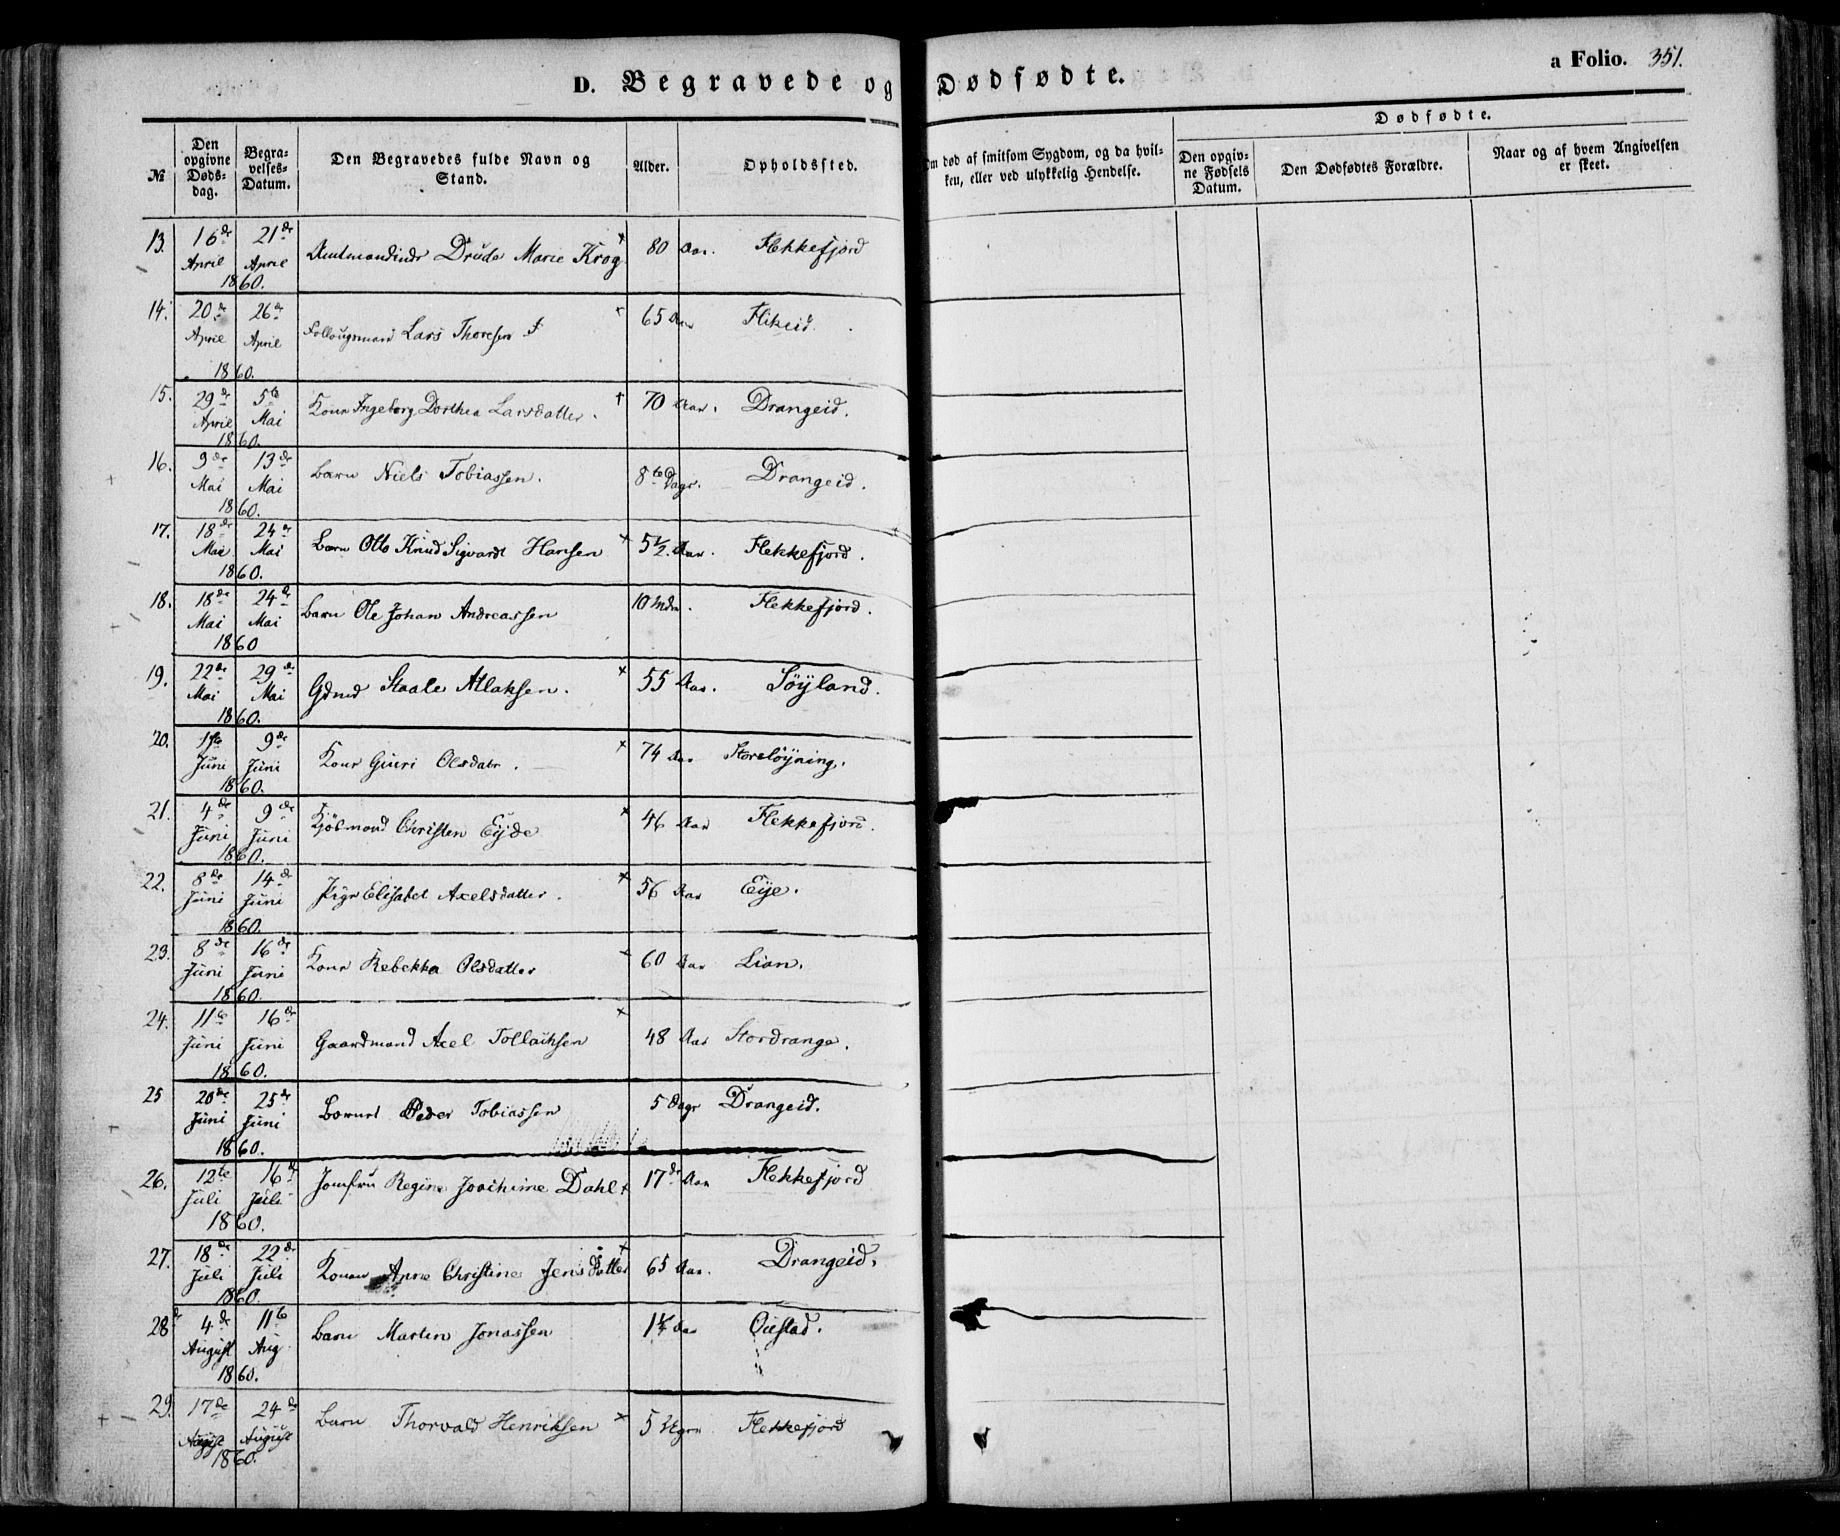 D. Begravede og Dødfødte.
a Folio. 351.
№
Den opgivne Døds-dag.
Begra-velses-Datum.
Den Begravedes fulde Navn og Stand.
Alder.
Opholdssted.
Om død af smitsom Sygdom, og da hvil-ken, eller ved ulykkelig Hendelse.
Dødfødte.
Den opgiv-ne Fødsels Datum.
Den Dødfødtes Forældre.
Naar og af hvem Angivelsen er skeet.
13. 16de April 21de April 1860. Amtmandinde Drude Marie Krog 80 Aar. Flekkefjord
14. 20de April 26de April 1860. Lars Thoresen 65 Aar Flikeid.
15. 29de April 5te Mai 1860. Kone Ingeborg Dorthea Larsdatter. 70 Aar. Drangeid.
16. 9de Mai 13de Mai 1860. Barn Niels Tobiassen. 8te Dage. Drangeid.
17. 18de Mai 24de Mai 1860. Barn Otto Knud Sigvardt Hansen 5½ Aar. Flekkefjord.
18. 18de Mai 24de Mai 1860 Barn Ole Johan Andreassen 10 Mdr. Flekkefjord.
19. 22de Mai 29de Mai 1860. Gdmd Staale Atlaksen. 55 Aar. Søyland.
20. 1ste Juni 9de Juni 1860. Kone Guri Olsdatr. 74 Aar Storeløyning.
21. 4de Juni 9de Juni 1860. Kjøbmand Christen Eyde 46 Aar Flekkefjord.
22. 8de Juni 14de Juni 1860. Pige Elisabet Axelsdatter. 56 Aar Eije.
23. 8de Juni 16de Juni 1860. Kone Rebekka Olsdatter 60 Aar Lian.
24. 11te Juni 16de Juni 1860. Gaardmand Axel Tollachsen 48 Aar Stordrange.
25 20de Juni 25de Juni 1860. Barnet Peder Tobiassen 5 Dage Drangeid.
26. 12te Juli 16de Juli 1860. Jomfru Regine Joachime Dahl 17de Aar Flekkefjord
27. 18de Juli 22de Juli 1860. Konen Anne Christine Jensdatter 65 Aar. Drangeid.
28 4de August 11te Aug 1860. Barn Martin Jonassen Aar Oiestad.
29. 17de August 24de August 1860. Barn Thorvald Henriksen 5 Uger Flekkefjord